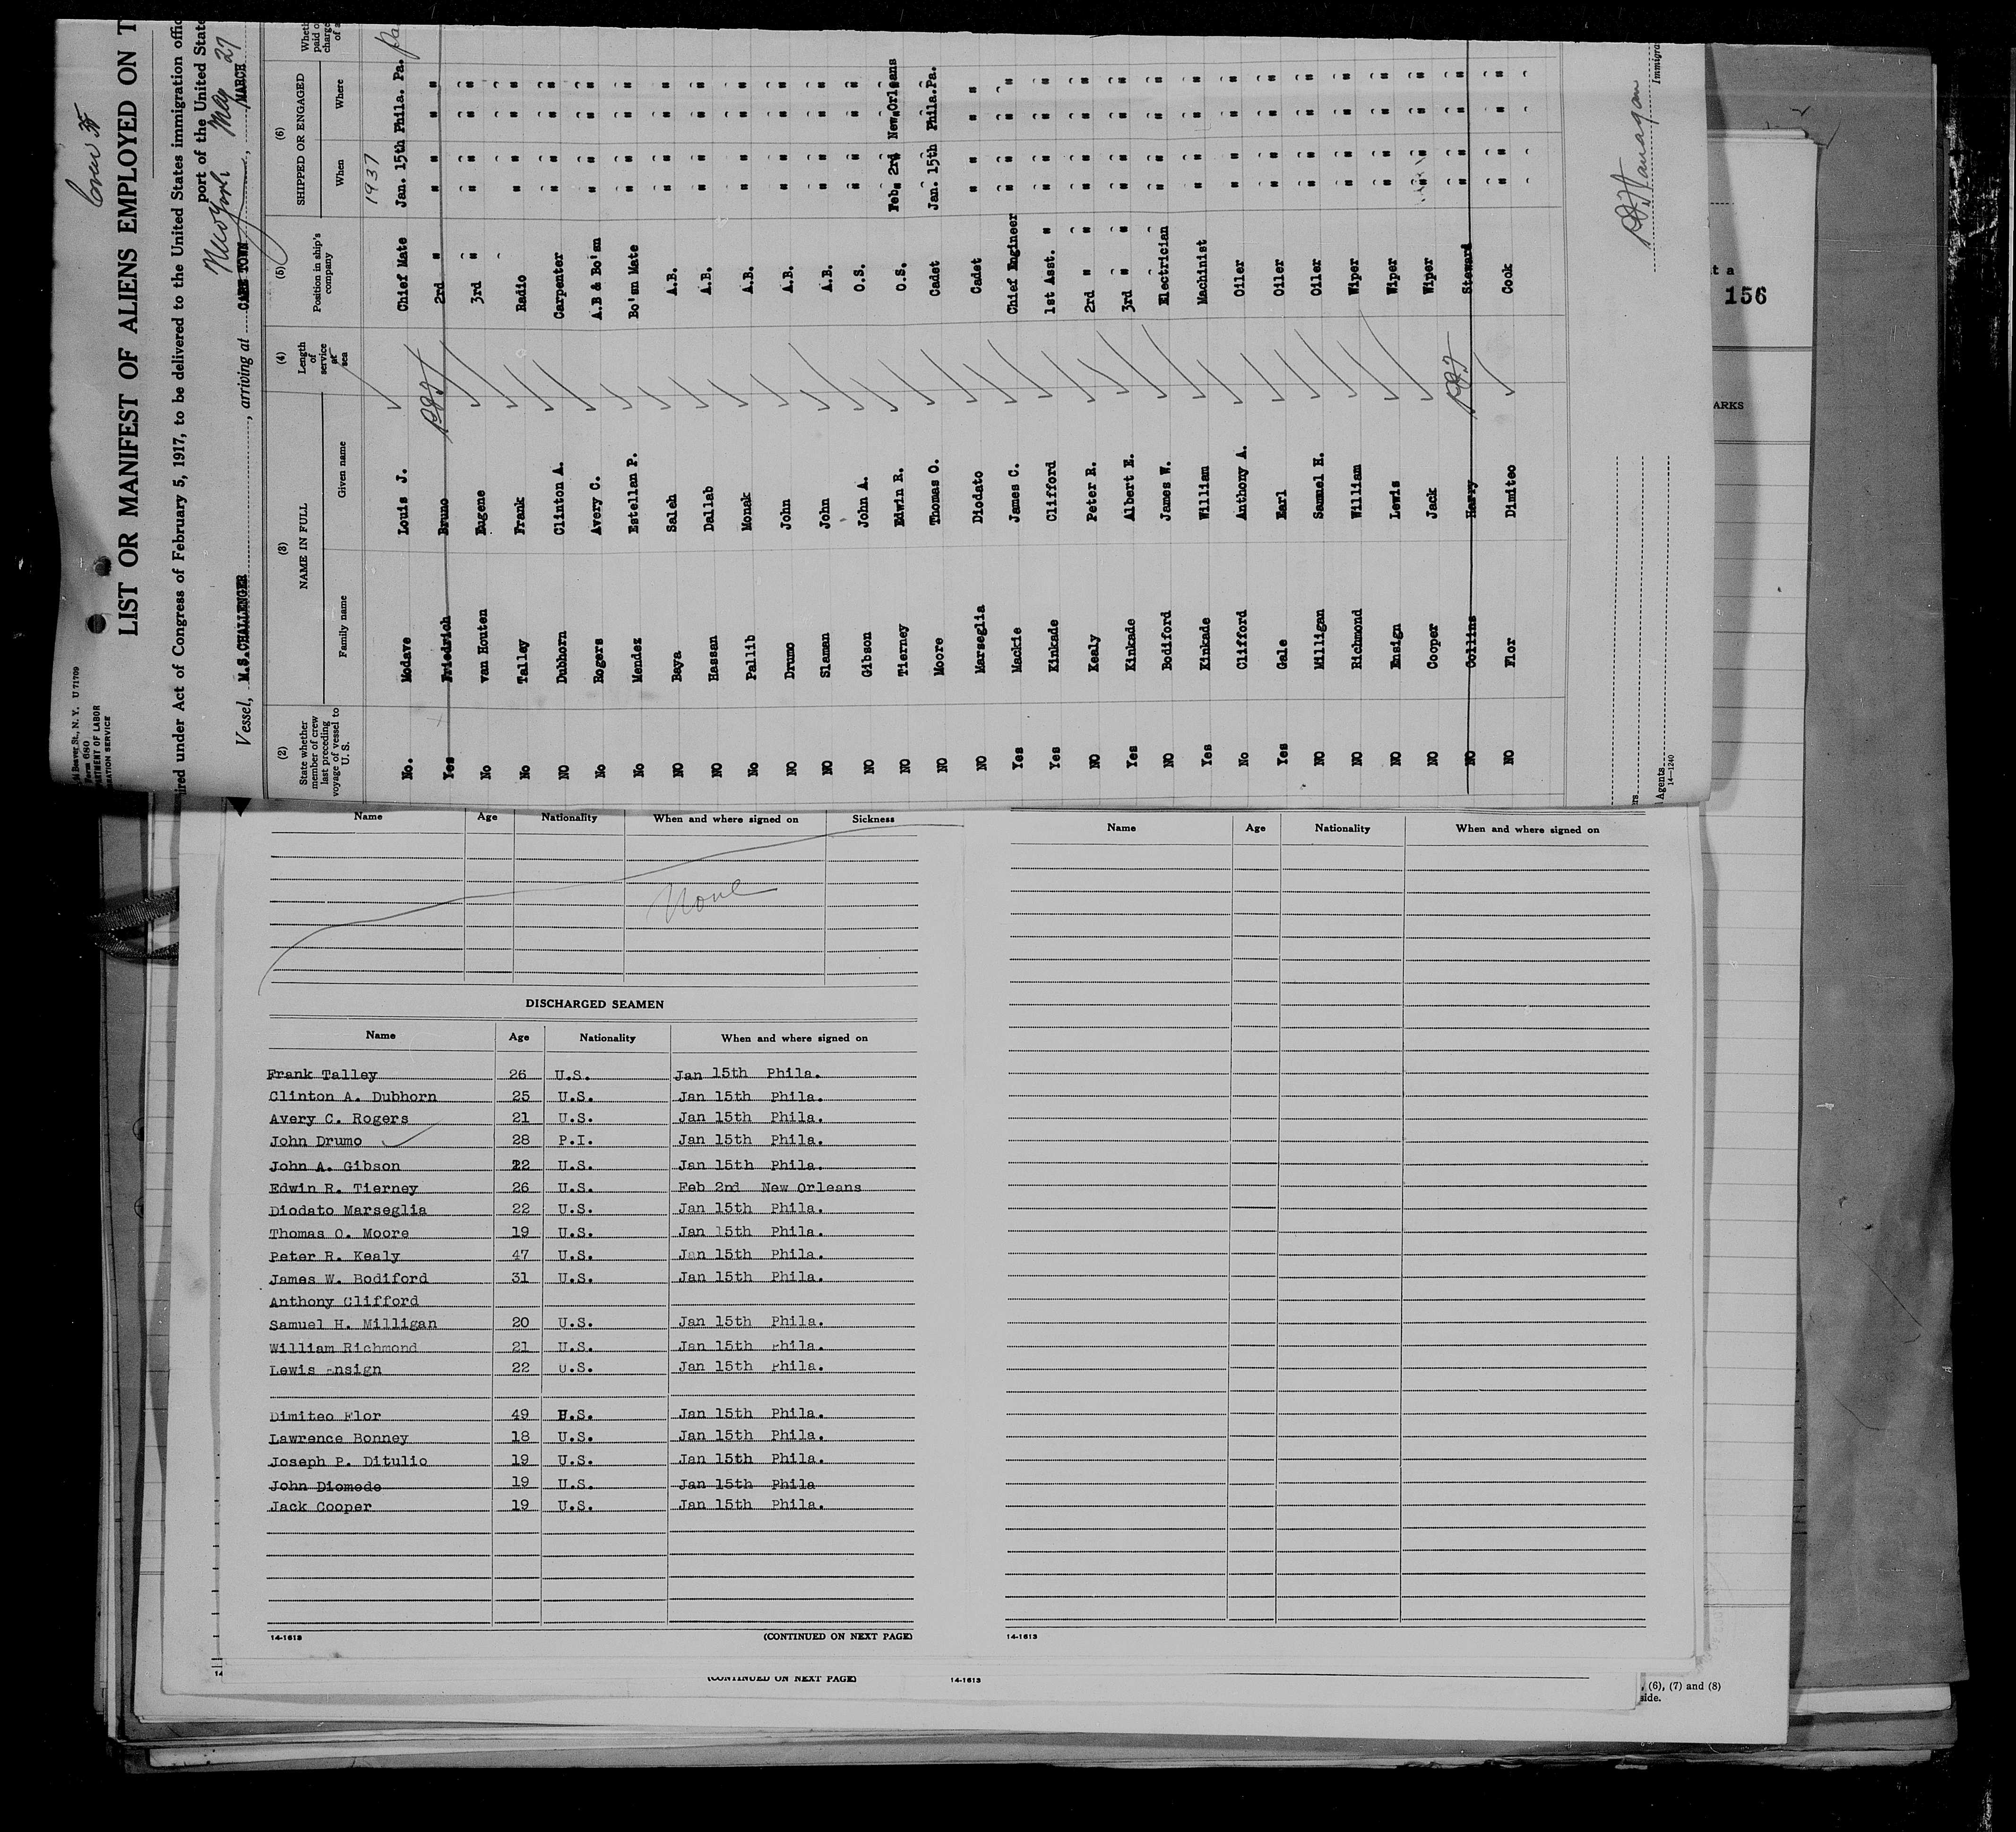 Crew
LIST OR MANIFEST OF ALIENS EMPLOYED ON T
U 71709
Form 680
RTMENT OF LABOR
RATION SERVICE
ired under Act of Congress of February 5, 1917, to be delivered to the United States immigration offic
port of the United State
Vessel, M.S.CHALLENGER, arriving at CAPE TOWN New York, MARCH May 27
(2) (3) (4) (5) (6)
State whether member of crew last preceding voyage of vessel to U. S.
NAME IN FULL
Family name Given name
Length of service at sea
Position in ship's company
SHIPPED OR ENGAGED
When Where
Wheth paid o charge of a
1937
No. Modave Louis J. Chief Mate Jan. 15th Phila. Pa.
Yes Friedrich Bruno 2rd " " " " "
No van Houten Eugene 3rd " " " " "
No Talley Frank Radio " " " "
NO Dubhorn Clinton A. Carpenter " " " "
No Rogers Avery C. A.B & Bo'sn " " " "
No Mendez Estellan P. Bo'sn Mate " " " "
NO Baya Saleh A.B. " " " "
NO Hassan Dallab A.B. " " " "
No Pallib Monak A.B. " " " "
NO Drumo John A.B. " " " "
NO Slaman John A.B. " " " "
NO Gibson John A. O.S. " " " "
NO Tierney Edwin R. O.S. Feb. 2rd New Orleans
NO Moore Thomas O. Cadet Jan. 15th Phila. Pa.
NO Marseglia Diodato Cadet " " " "
Yes Mackie James C. Chief Engineer " " " "
Yes Kinkade Clifford 1st Asst. " " " " "
NO Kealy Peter R. 2rd " " " " "
Yes Kinkade Albert E. 3rd " " " " "
NO Bodiford James W. Electrician " " " "
Yes Kinkade William Machinist " " " "
No Clifford Anthony A. Oiler " " " "
Yes Gale Earl Oiler " " " "
NO Milligan Samuel H. Oiler " " " "
NO Richmond William Wiper " " " "
NO Ensign Lewis Wiper " " " "
NO Cooper Jack Wiper " " " "
NO Collins Harry Steward " " " "
NO Flor Dimiteo Cook " " " "
Immigra
rs
Agents
14—1240
t a
156
ARKS
Name Age Nationality When and where signed on Sickness
None
DISCHARGED SEAMEN
Name Age Nationality When and where signed on
Frank Talley 26 U.S. Jan 15th Phila.
Clinton A. Dubhorn 25 U.S. Jan 15th Phila.
Avery C. Rogers 21 U.S. Jan 15th Phila.
John Drumo 28 P.I. Jan 15th Phila.
John A. Gibson 22 U.S. Jan 15th Phila.
Edwin R. Tierney 26 U.S. Feb 2nd New Orleans
Diodato Marseglia 22 U.S. Jan 15th Phila.
Thomas O. Moore 19 U.S. Jan 15th Phila.
Peter R. Kealy 47 U.S. Jan 15th Phila.
James W. Bodiford 31 U.S. Jan 15th Phila.
Anthony Clifford
Samuel H. Milligan 20 U.S. Jan 15th Phila.
William Richmond 21 U.S. Jan 15th Phila.
Lewis Ensign 22 U.S. Jan 15th Phila.
Dimiteo Flor 49 U.S. Jan 15th Phila.
Lawrence Bonney 18 U.S. Jan 15th Phila.
Joseph P. Ditulio 19 U.S. Jan 15th Phila.
John Diomede 19 U.S. Jan 15th Phila
Jack Cooper 19 U.S. Jan 15th Phila.
14-1613 (CONTINUED ON NEXT PAGE)
Name Age Nationality When and where signed on
14-1613
14
(CONTINUED ON NEXT PAGE) 14-1613
, (6), (7) and (8)
side.